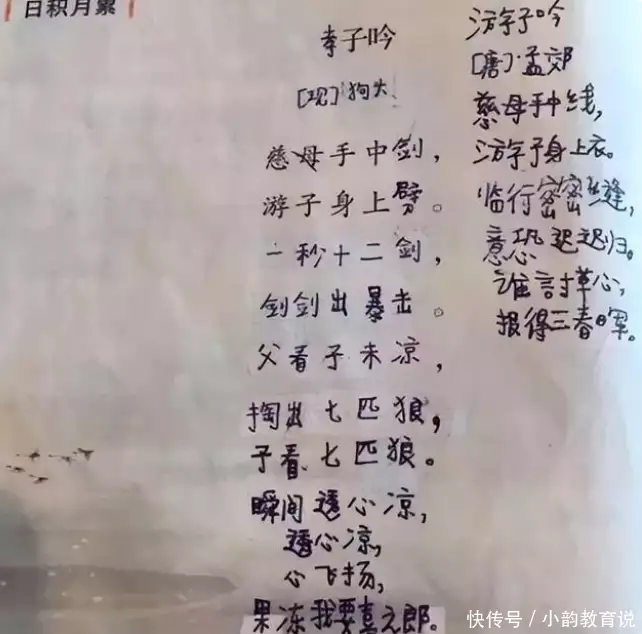 日积月累
孝子吟
[现]狗
慈母手中剑，
游子身上劈。
一秒十二剑，
剑剑出暴击。
父看子未凉，
掏出七匹狼，
子看七匹狼。
瞬间透心凉，
透心凉，
心飞扬，
果冻我要喜之郎。
游子吟
[唐]孟郊
慈母手中线，
游子身上衣。
临行密密缝，
意恐迟迟归。
谁言寸草心，
报得三春晖。
快传号／小韵教育说